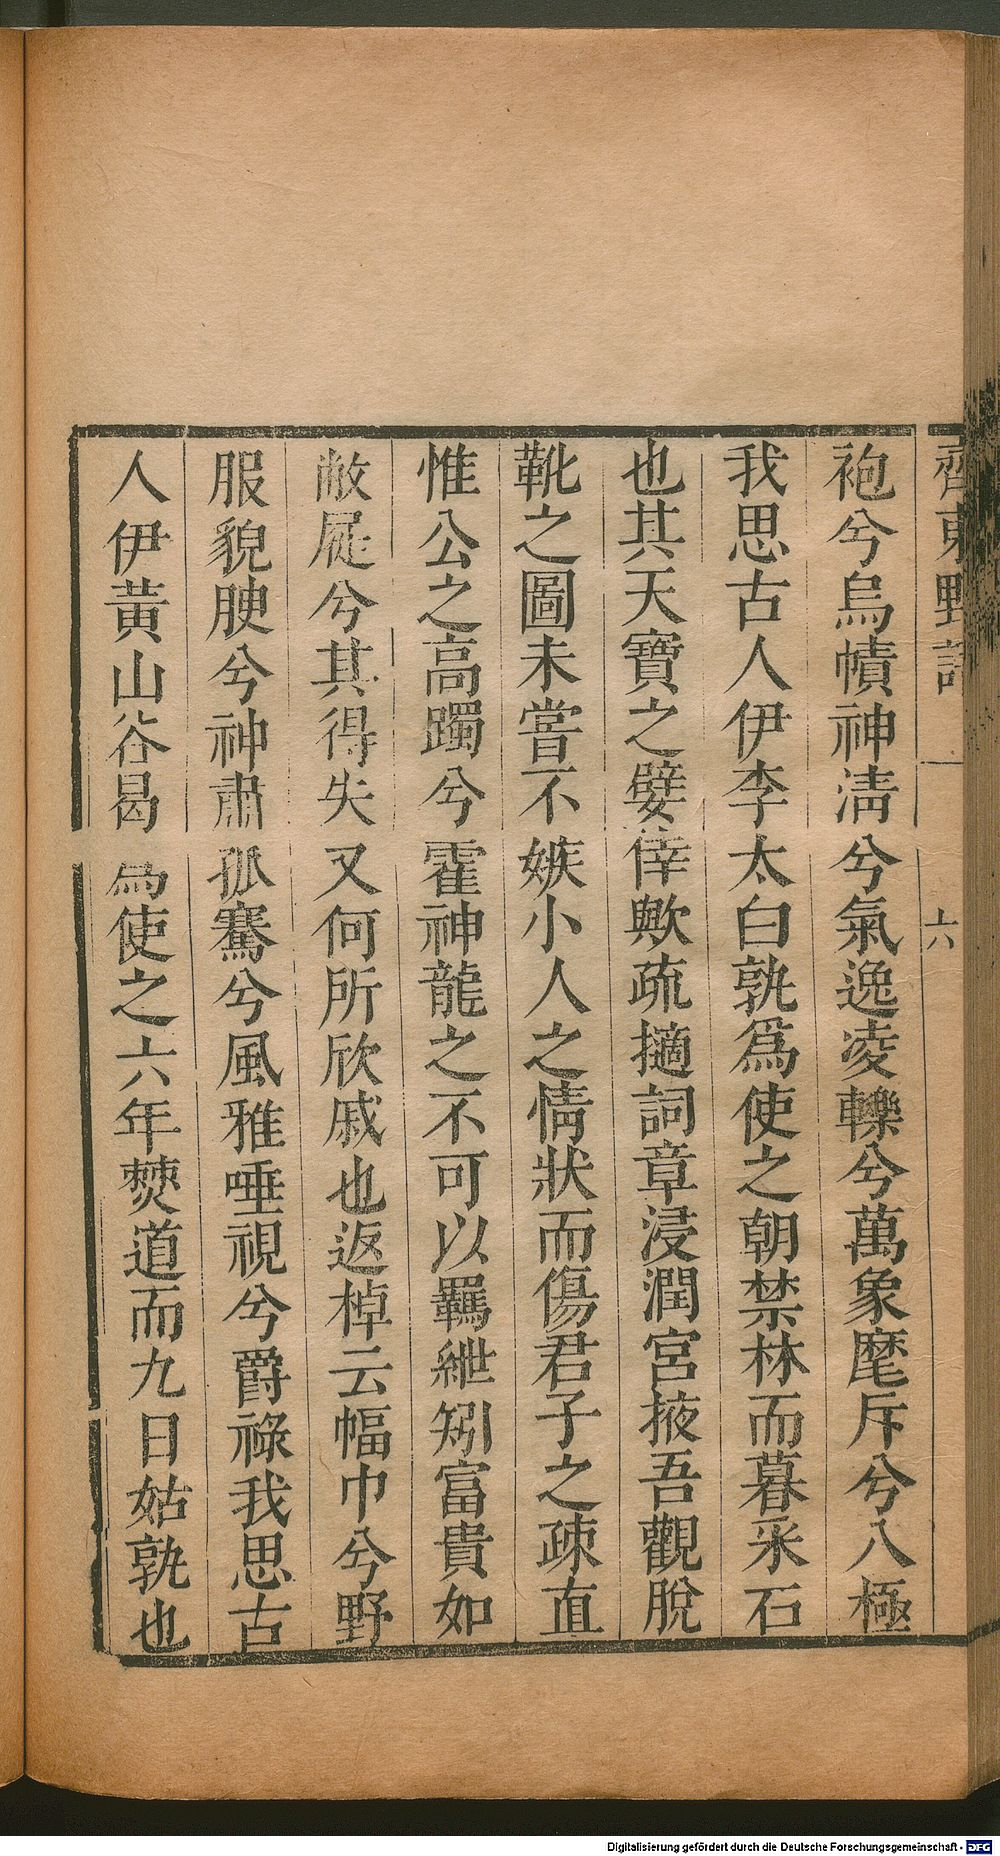 齊東野語 一 六
袍兮烏幘神淸兮氣逸凌轢兮萬象麾斥兮八極
我思古人伊李太白孰爲使之朝禁林而暮采石
也其天寶之嬖倖歟疏擿詞章浸潤宮掖吾觀脫
靴之圖未嘗不嫉小人之情狀而傷君子之疎直
惟公之高躅兮霍神龍之不可以羈紲矧富貴如
敝屣兮其得失又何所欣戚也返棹云幅巾兮野
服貌腴兮神肅孤騫兮風雅唾視兮爵祿我思古
人伊黃山谷曷爲使之六年僰道而九日姑孰也
Digitalisierung gefördert durch die Deutsche Forschungsgemeinschaft - DFG